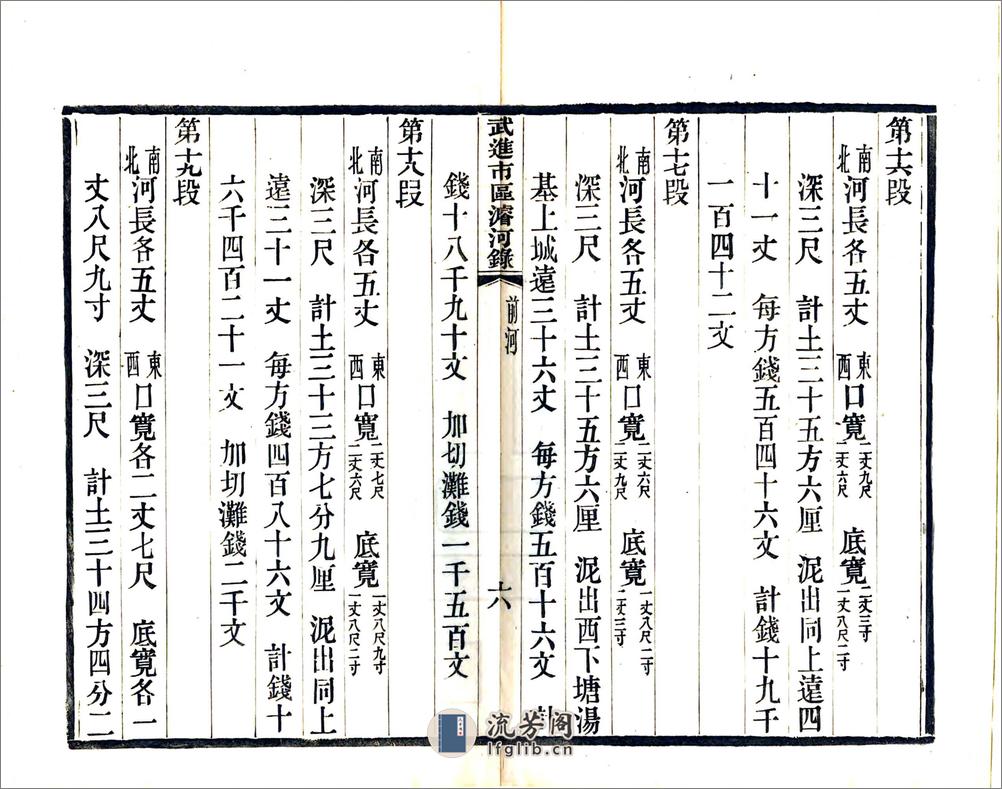 第十六段
南北河長各五丈　東西口寬二丈九尺二丈六尺　底寬二丈三寸一丈八尺二寸
深三尺　計土三十五方六厘　泥出同上遠四
十一丈　每方錢五百四十六文　計錢十九千
一百四十二文
第十七段
南北河長各五丈　東西口寬二丈六尺二丈九尺　底寬一丈八尺二寸二丈三寸
深三尺　計土三十五方六厘　泥出西下塘湯
基上城遠三十六丈　每方錢五百十六文　計
武進市區濬河錄　前河　六
錢十八千九十文　加切灘錢一千五百文
第十八段
南北河長各五丈　東西口寬二丈七尺二丈六尺　底寬一丈八尺九寸一丈八尺二寸
深三尺　計土三十三方七分九厘　泥出同上
遠三十一丈　每方錢四百八十六文　計錢十
六千四百二十一文　加切灘錢二千文
第十九段
南北河長各五丈　東西口寬各二丈七尺　底寬各一
丈八尺九寸　深三尺　計土三十四方四分二
流芳阁
lfglib.cn